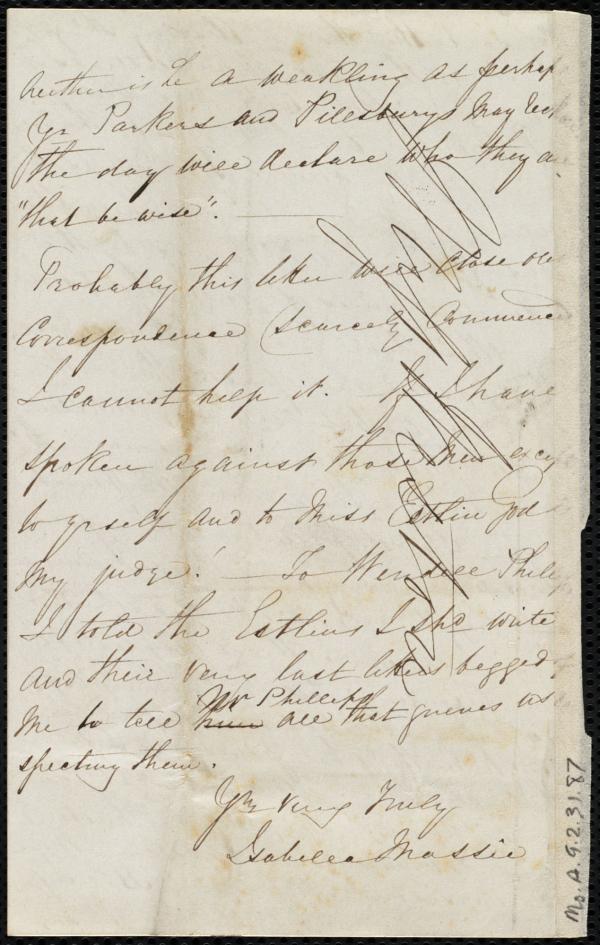 neither is he a weakling as perhap
Yr Parkers and Pillsburys may
the day will declare who they a
"that be wise".
Probably this letter will close
Correspondence (scarcely Commenced
I cannot help it. If I have
spoken against those men
to yrself and to Miss Estlin God
my judge! — To Wendell Philip
I told the Estlins I shd write
and their very last letters begged
me to tell him Mr Phillips all that grieves us
specting them.
Yrs very Truly
Isabella Massie
Ms. A. 9. 2. 31. 87